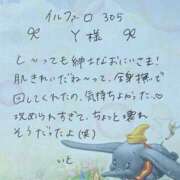 イルファロ 305
Y様
し〜っても紳士なおにいさま!
肌きれいだね〜って、全身撫で
回してくれたの、気持ちよかった♡
攻められすぎて、ちょっと壊れ
そうだたよ(笑)
いと